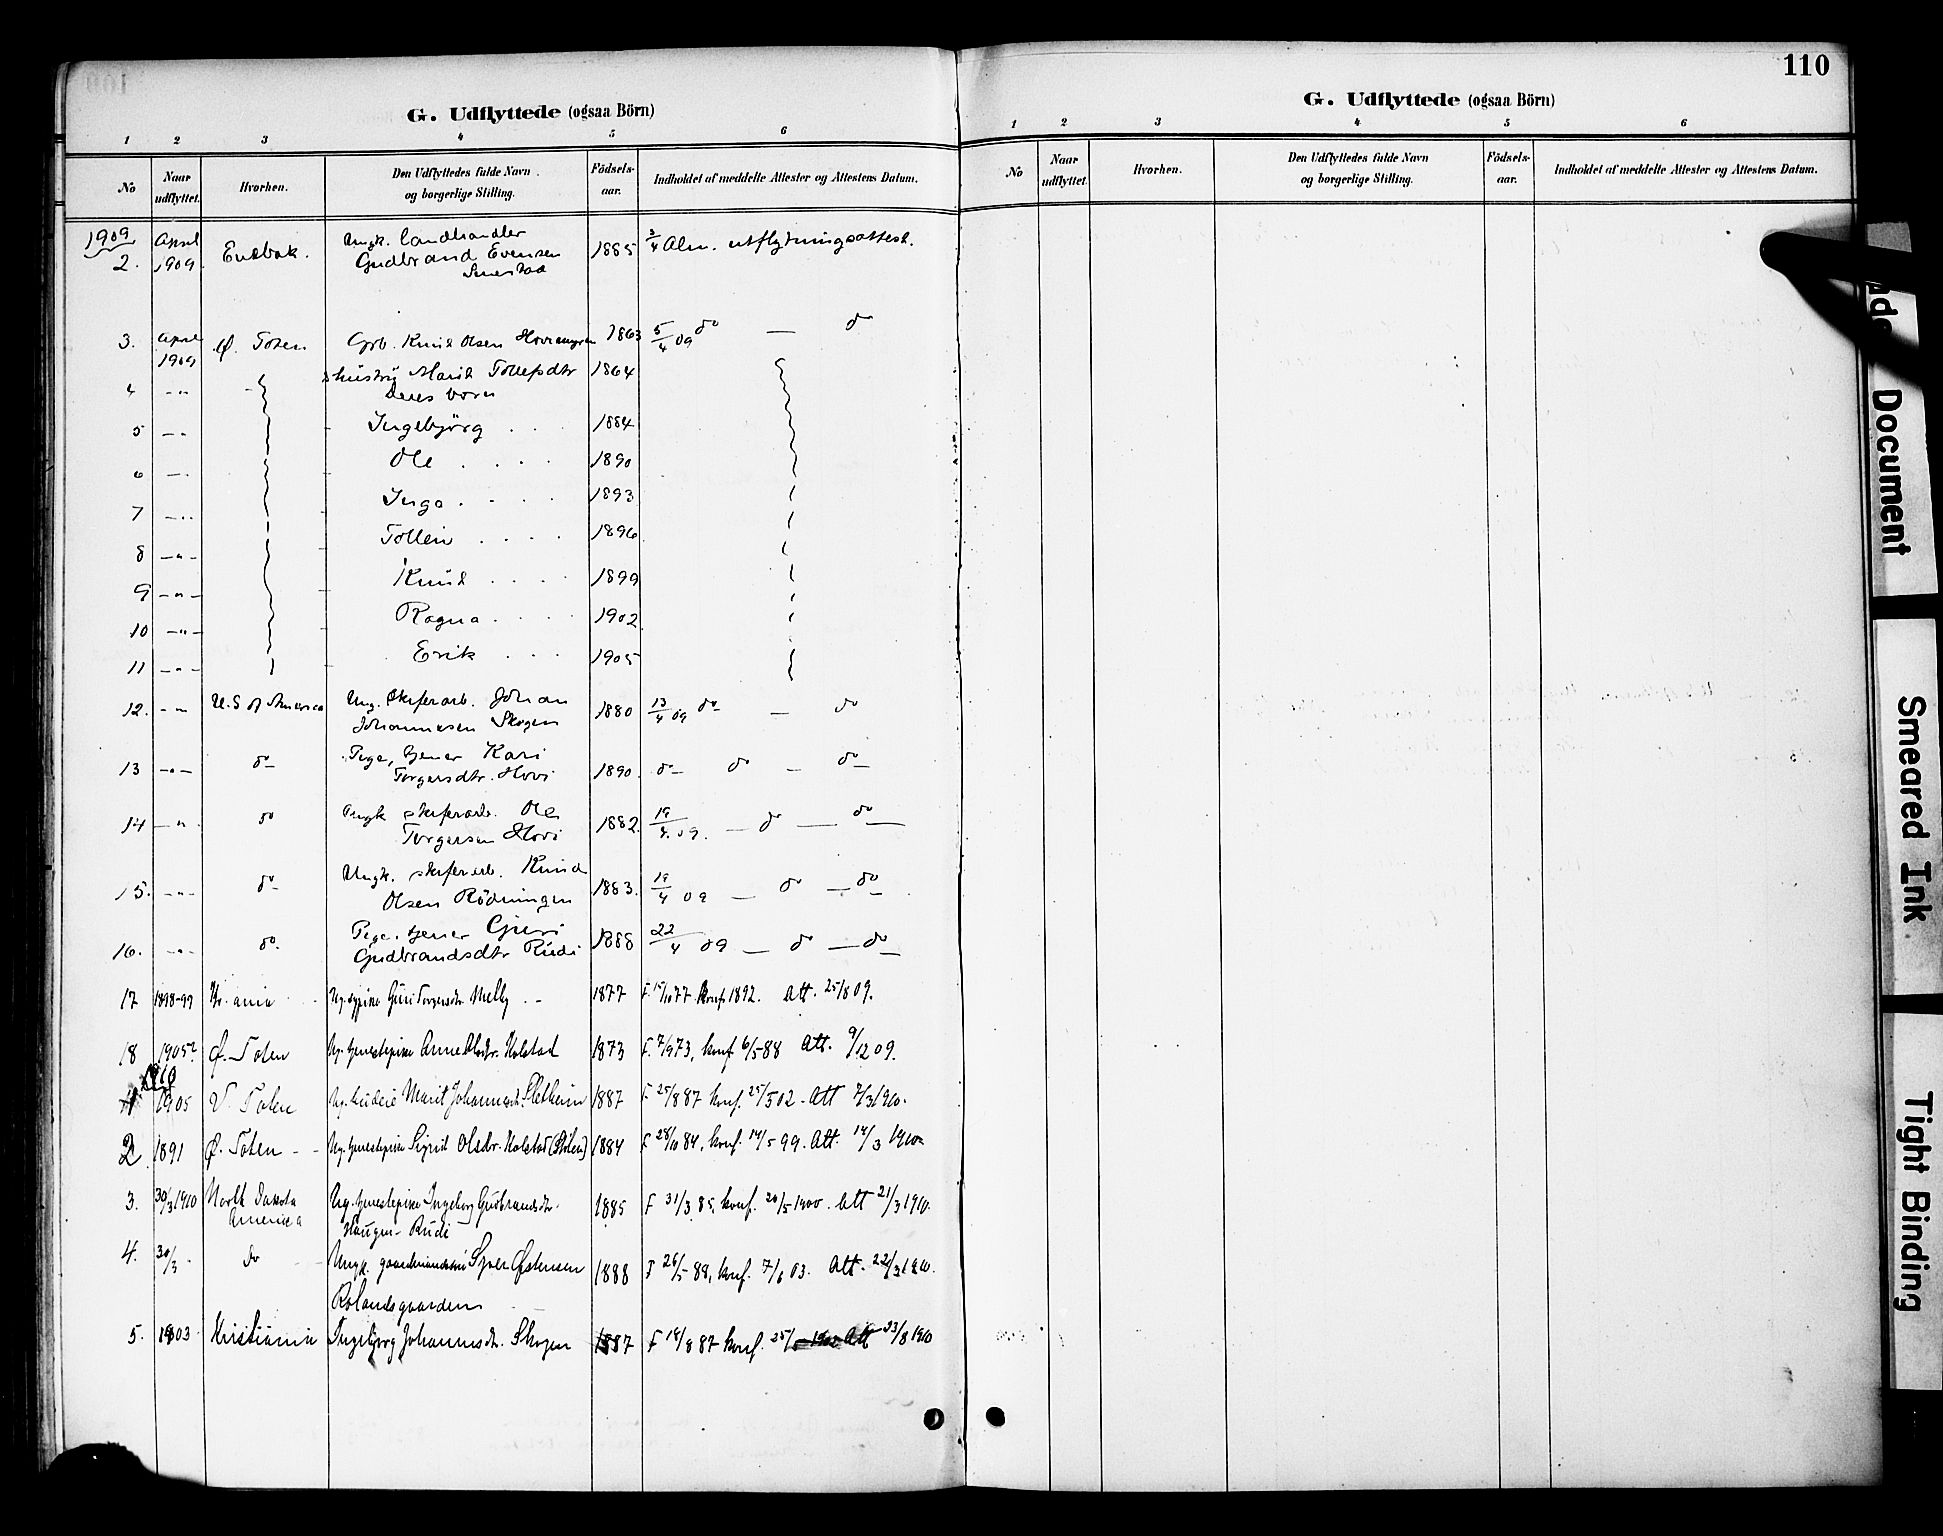 110
G. Udflyttede (ogsaa Börn)
1 2 3 4 5 6
No Naar udflyttet. Hvorhen. Den Udflyttedes fulde Navn og borgerlige Stilling. Födsels-aar. Indholdet af meddelte Attester og Attestens Datum.
1909
2. April 1909 Ungk. landhandler 1885 3/4 Alm. utflytningsattest.
Gudbrand Evensen
3. April 1909 Ø. Toten Grb. Knud Olsen 1863 5/4 09 do — do
4 -"- hustru Marit Tollefsdtr 1864
deres børn
5 -"- Ingebjörg . . . 1884
6 -"- Ole . . . . 1890
7 -"- Inga . . . . 1893
8 -"- . . . . 1896
9 -"- Knud . . . . 1899
10 -"- Ragna . . . . 1902
11 -"- Erik . . . 1905
12. -"- U.S of America Ung. Skiferarb. Johan 1880 13/4 09 do — do
Johannesen Skogen
13 -"- do Pige, tjener Kari
Torgersdtr. Hovi 1890. do do — do
14 -"- do Ungk skiferarb. Ole 1882. 19/4. 09. — do — do
Torgersen Hovi
15. -"- do Ungk. skiferarb. Knud 1883. 19/4 09 — do — do
Olsen Rödningen
16. -"- do. Pige. tjener Guri 1888 22/4 09 — do — do
Gudbrandsdtr Rudi
17 1898-99 Kr.ania Guri Torgersdtr Melby 1877 F. 15/10 77 konf. 1892. Att. 25/8 09.
18 1905? Ø. Toten Ug. tjenestepike Anne Olsdtr. Holstad 1873 F. 7/9 73, konf 6/5 88 Att. 9/12 09.
1910
1 1905 V. Toten Marit Johannesdtr. Sletheim 1887 F. 25/8 87 konf. 25/5 02. Att 7/3 1910.
2 1891 Ø. Toten Ug. tjenestepike Sigrid Olsdtr. Holstad 1884 F 28/10 84, konf. 14/5 99. Att. 14/3 1910
3. 30/3 1910 North Dakota America Ug. tjenestepike Ingeborg Gudbrandsdtr. 1885 F 31/3 85, konf. 20/5 1900. Att 21/3 1910.
Haugen - Rudi
4. 30/3. do Ungk. Syver Østensen 1888 F 26/5 88, konf. 7/6 03. Att. 22/3 1910.
Rolandsgaarden
5. 1903 Kristiania Ingebjørg Johannesdtr. Skogen 1887 F 18/8 87 konf. 25/5 1902 Att 23/8 1910
G. Udflyttede (ogsaa Börn)
1 2 3 4 5 6
No Naar udflyttet. Hvorhen. Den Udflyttedes fulde Navn og borgerlige Stilling. Födsels-aar. Indholdet af meddelte Attester og Attestens Datum.
Document
Smeared Ink
Tight Binding